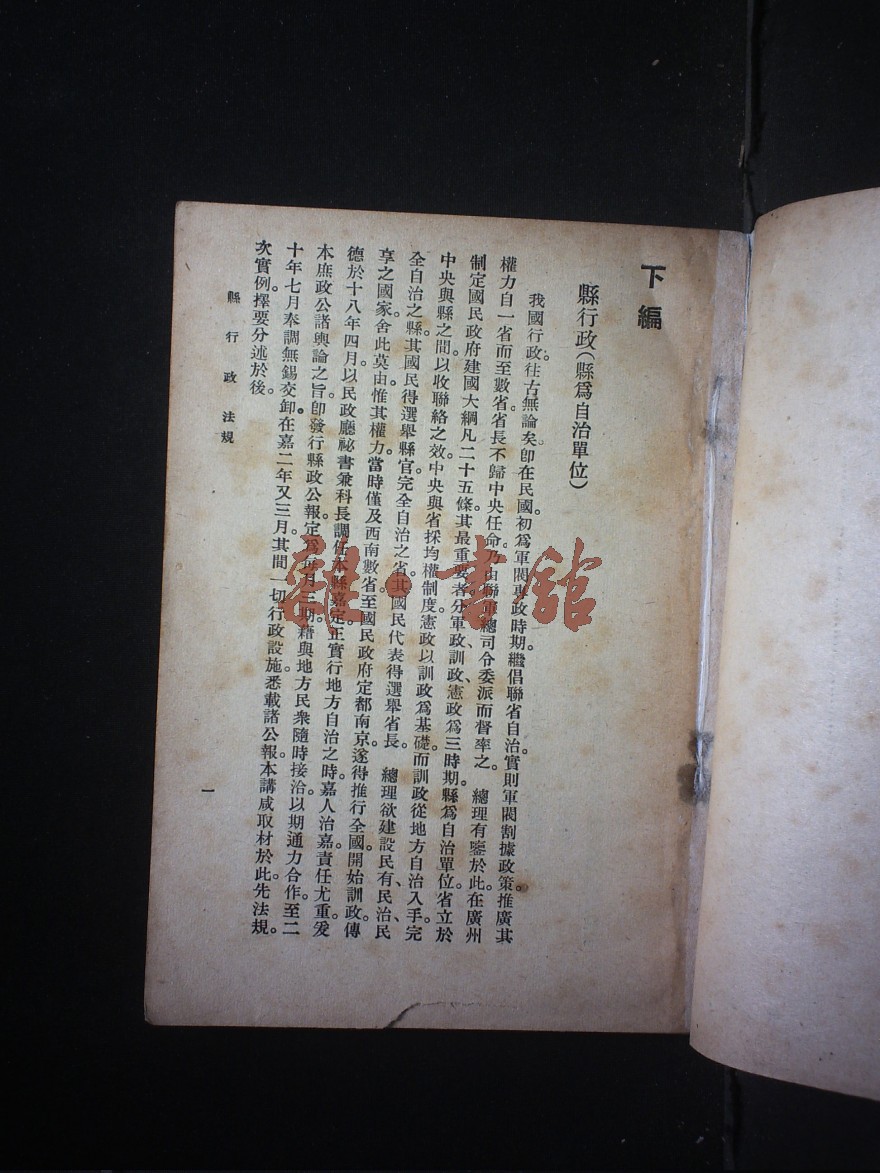 下編
縣行政(縣爲自治單位)
我國行政。往古無論矣。卽在民國。初爲軍閥專政時期。繼倡聯省自治。實則軍閥割據政策。推廣其
權力自一省而至數省。省長不歸中央任命。乃由聯軍總司令委派而督率之。 總理有鑒於此。在廣州
制定國民政府建國大綱凡二十五條。其最重要者。分軍政、訓政、憲政爲三時期。縣爲自治單位。省立於
中央與縣之間。以收聯絡之效。中央與省採均權制度。憲政以訓政爲基礎。而訓政從地方自治入手。完
全自治之縣。其國民得選舉縣官。完全自治之省。其國民代表得選舉省長。 總理欲建設民有、民治、民
享之國家。舍此莫由。惟其權力。當時僅及西南數省。至國民政府定都南京。遂得推行全國。開始訓政。傳
德於十八年四月。以民政廳祕書兼科長。調任本縣嘉定。正實行地方自治之時。嘉人治嘉。責任尤重。爰
本庶政公諸輿論之旨。卽發行縣政公報。定爲每月三期。藉與地方民衆隨時接洽。以期通力合作。至二
十年七月奉調無錫交卸。在嘉二年又三月。其間一切行政設施。悉載諸公報。本講咸取材於此。先法規。
次實例。擇要分述於後。
縣行政法規
一
雜·書館